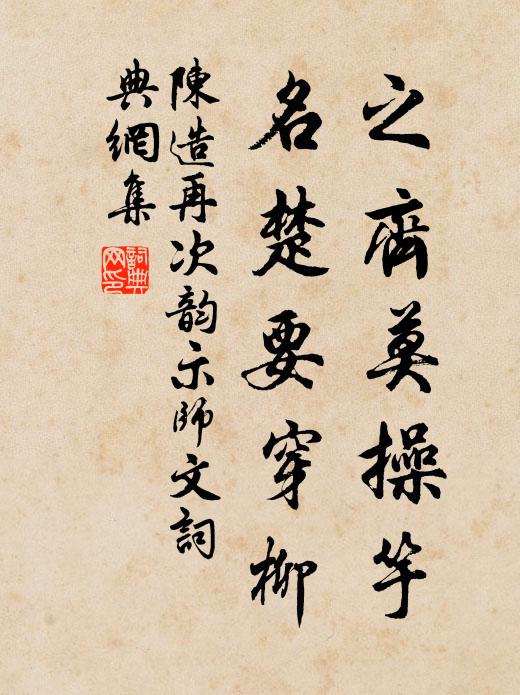 之齊莫操竽
名楚要穿柳
陳造再次韵示師文詞
典網集
詞典網印